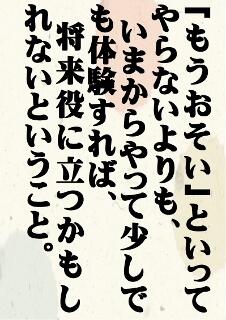 「もうおそい」といって
やらないよりも、
いまからやって少しで
も体験すれば、
将来役に立つかもし
れないということ。